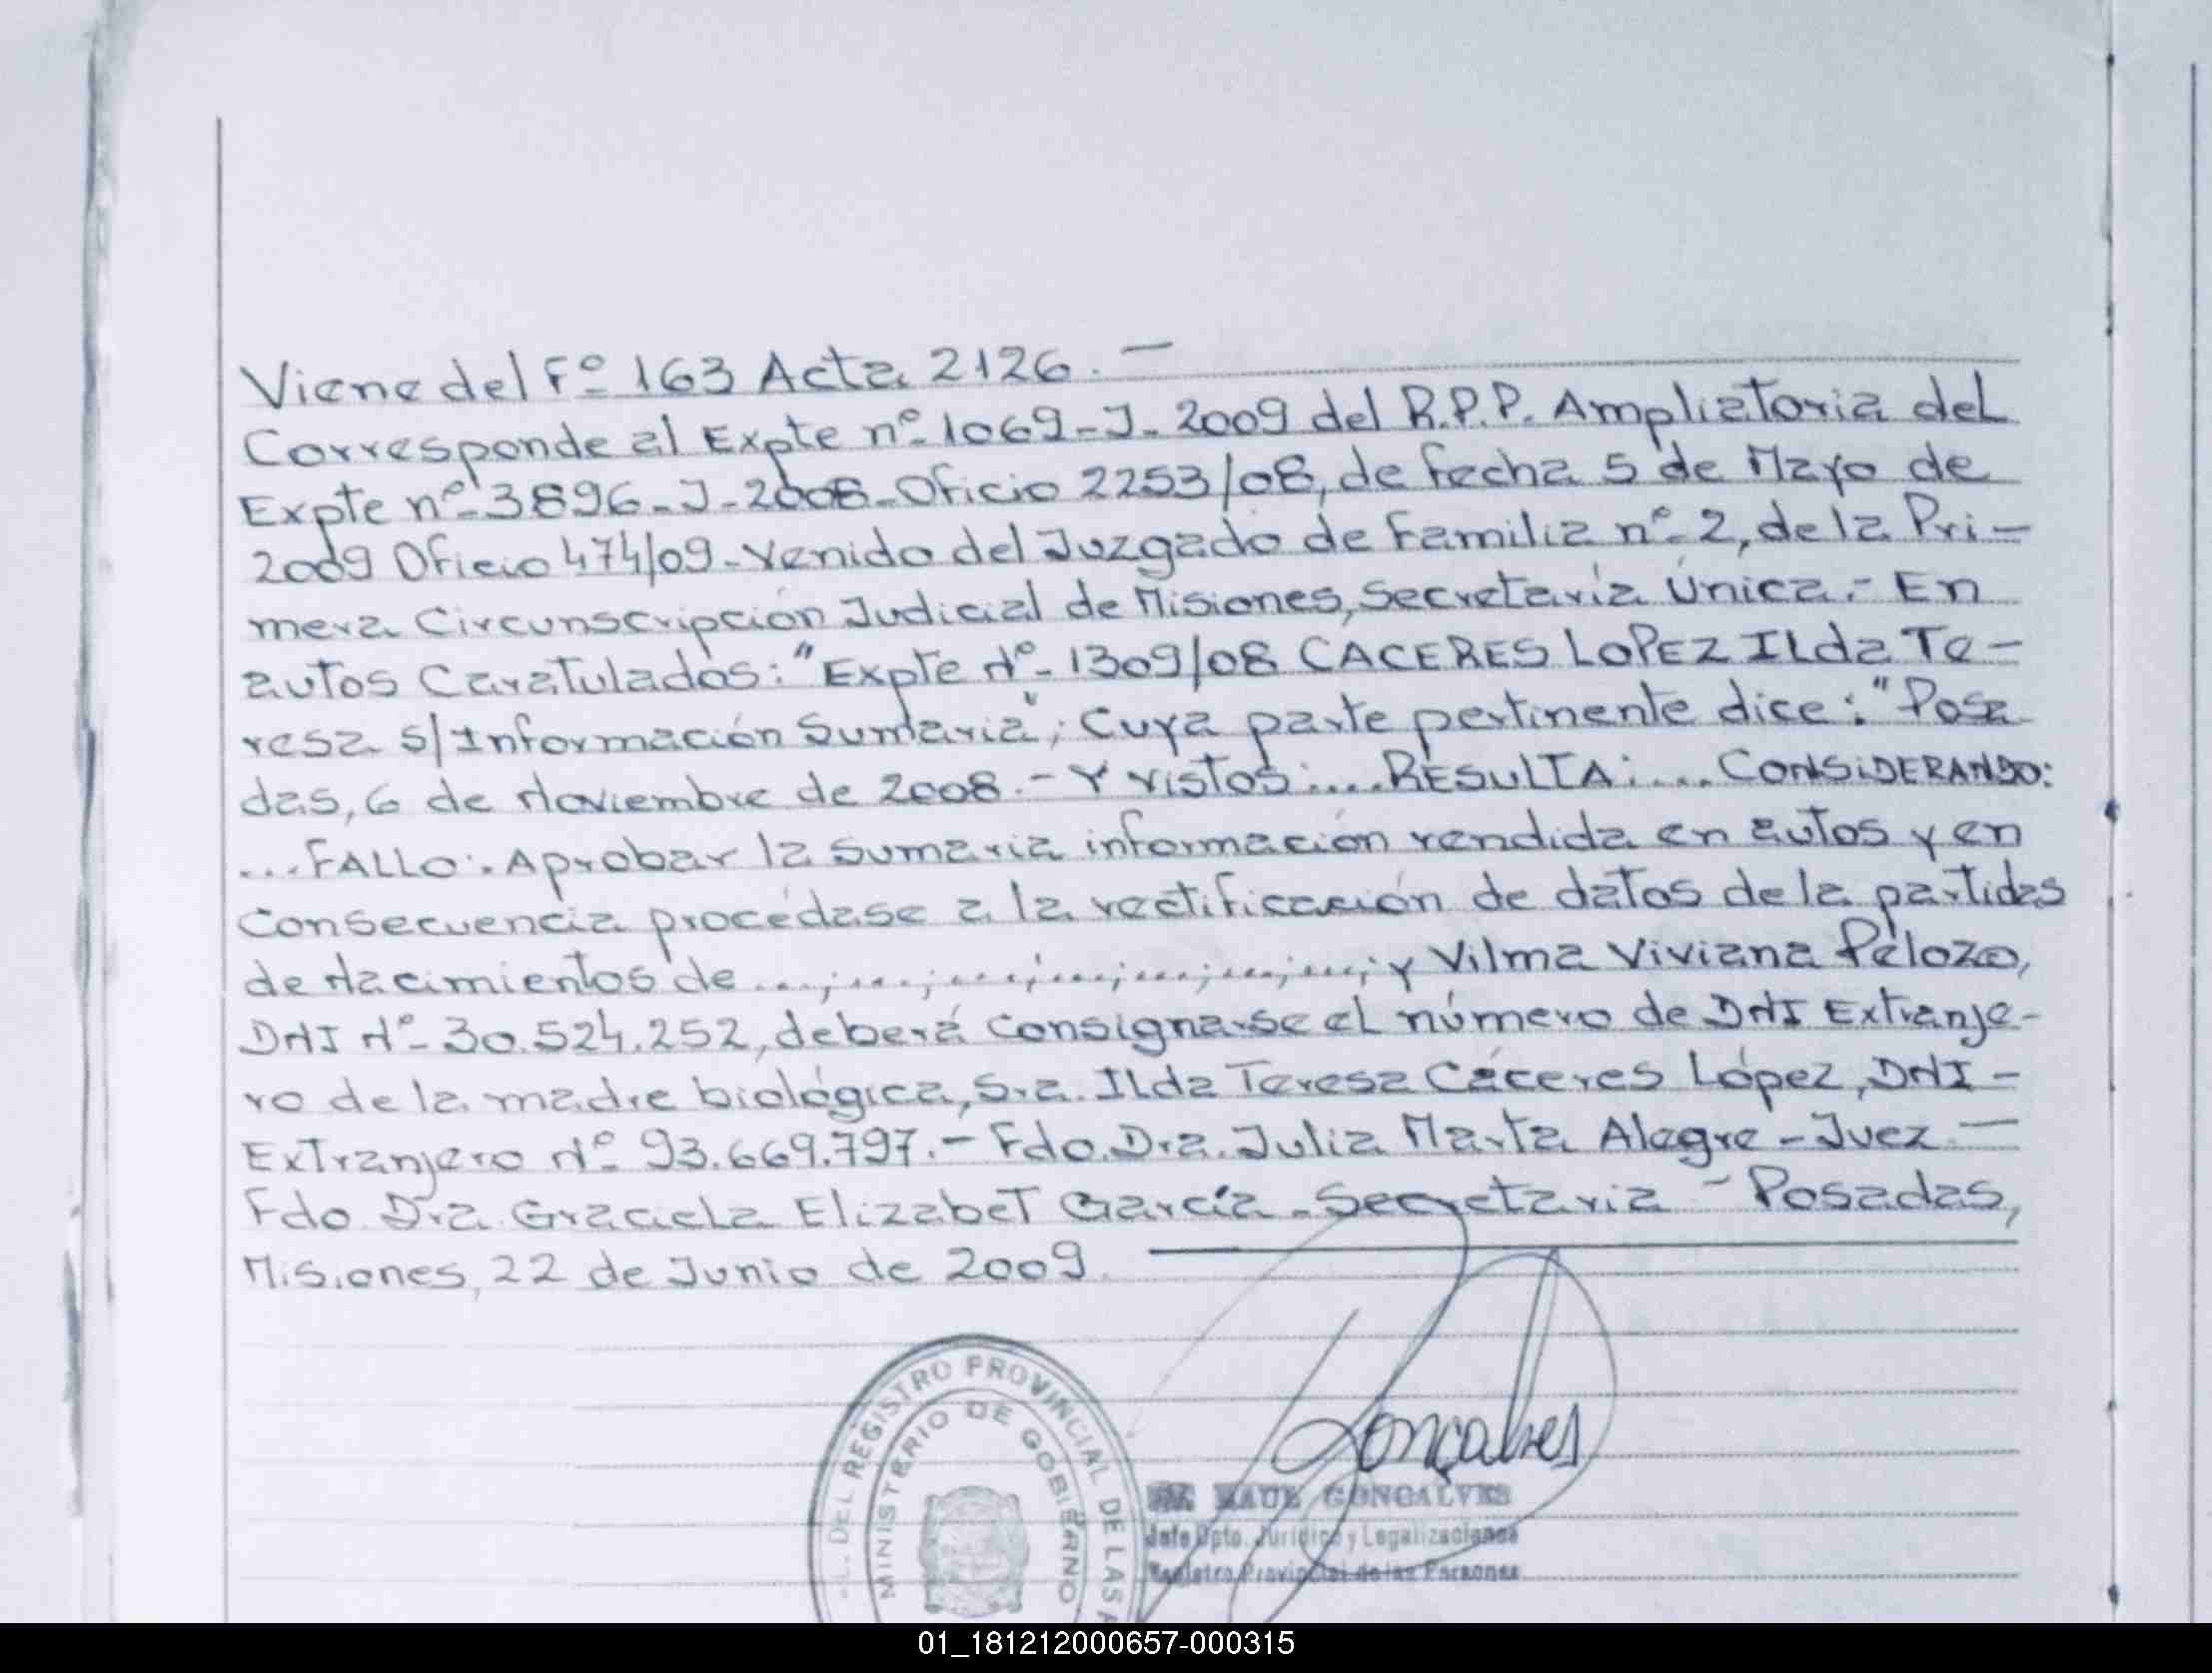 Viene del Fº 163 Acta 2126. —
Corresponde al Expte nº 1069-J-2009 del R.P.P. Ampliatoria del
Expte nº 3896-J-2008-Oficio 2253/08, de fecha 5 de Mayo de
2009 Oficio 474/09-venido del Juzgado de Familia nº 2, de la Pri-
mera Circunscripción Judicial de Misiones, Secretaría Única.- En
autos Caratulados: "Expte Nº 1309/08 CACERES LOPEZ ILda Te-
resa s/Información Sumaria"; Cuya parte pertinente dice: "Posa
das, 6 de Noviembre de 2008.- Y vistos:....RESULTA:....CONSIDERANDO:
...FALLO:.Aprobar la sumaria información rendida en autos y en
consecuencia procédase a la rectificación de datos de la partidas
de Nacimientos de ...;...;...;...;...;...;...;y Vilma Viviana Pelozo,
DNI Nº 30.524.252, deberá consignarse el número de DNI Extranje-
ro de la madre biológica, Sra. ILda Teresa Cáceres López, DNI-
Extranjero Nº 93.669.797.- Fdo. Dra. Julia Marta Alegre-Juez —
Fdo. Dra. Graciela Elizabet García-Secretaria - Posadas,
Misiones, 22 de Junio de 2009.
DEL REGISTRO PROVINCIAL DE LAS
MINISTERIO DE GOBIERNO
Gonçalves
RAUL GONCALVES
Jefe Dpto. Jurídico y Legalizaciones
Registro Provincial de las Personas
01_181212000657-000315